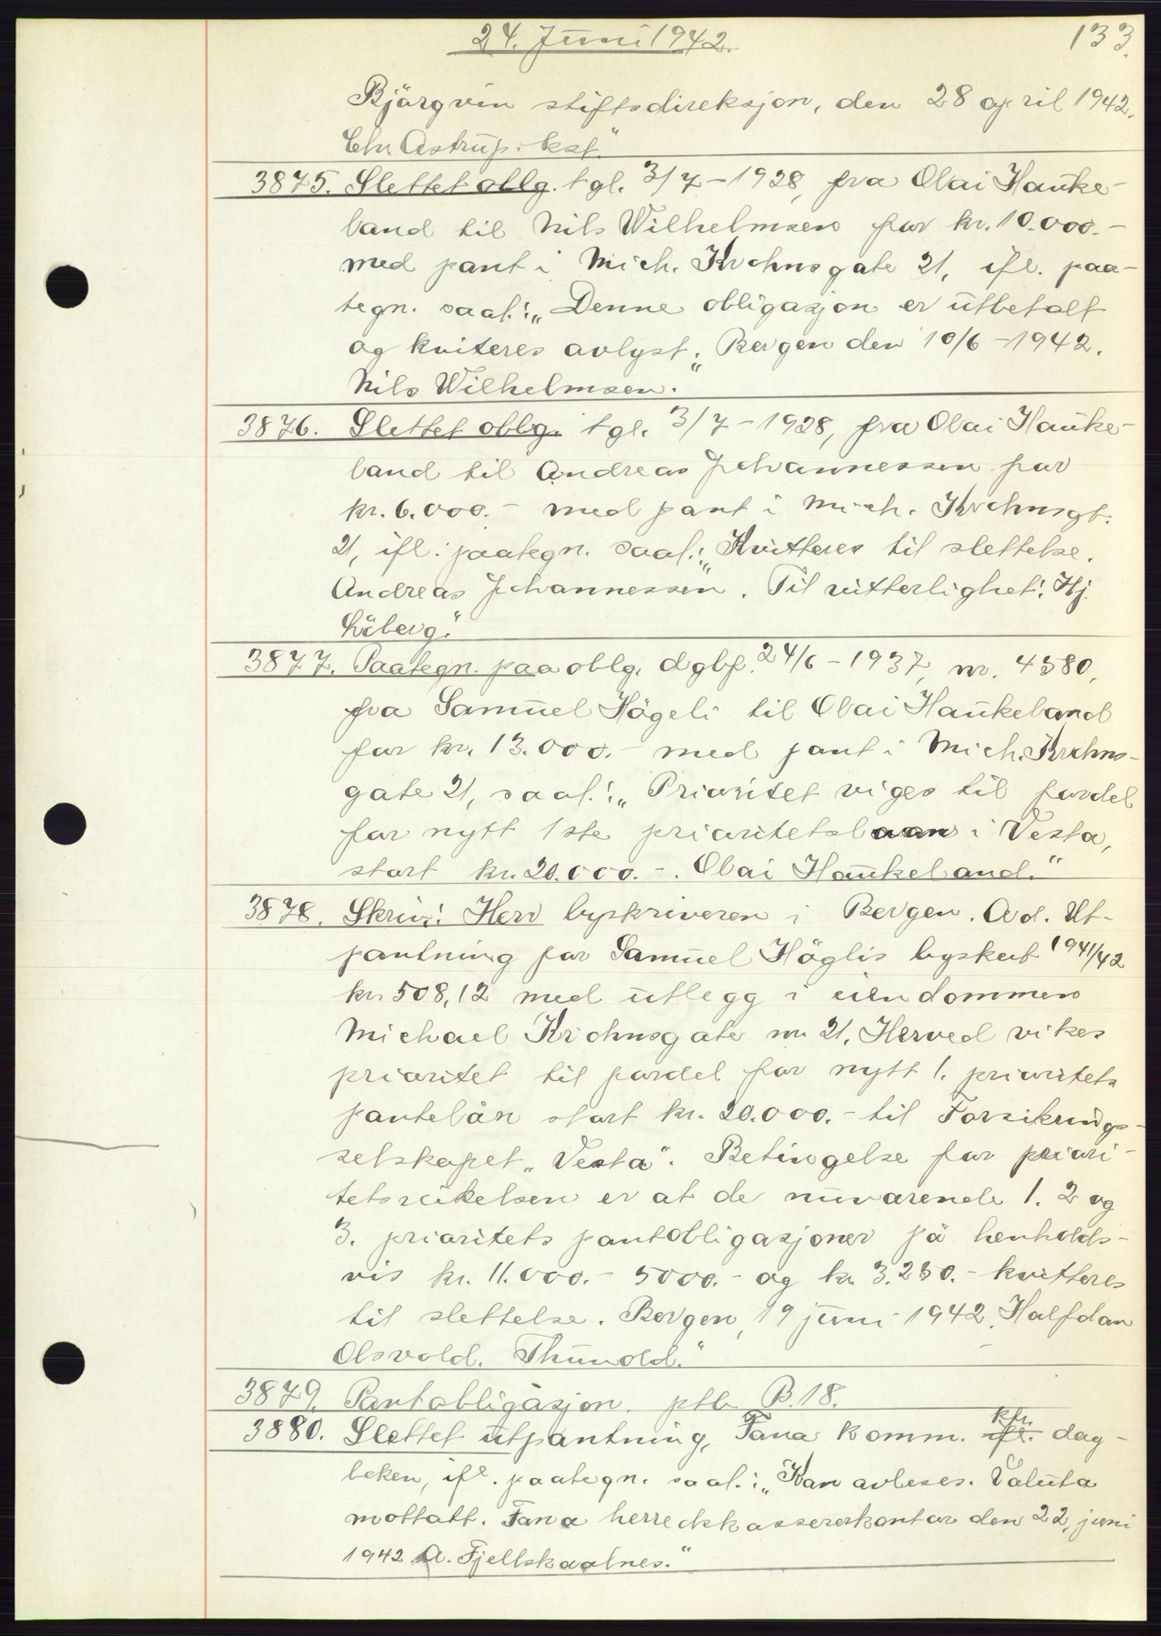 24. Juni 1942.
133.
Bjørgvin stiftsdireksjon, den 28 april 1942.
Chr Astrup. kst."
3875. Slettet oblg. tgl. 3/7-1928, fra Olai Hauke-
land til Nils Wilhelmsen for kr. 10.000.-
med pant i Mich. Krohnsgate 21, ifl. paa-
tegn. saal.: „Denne obligasjon er utbetalt
og kviteres avlyst. Bergen den 10/6-1942.
Nils Wilhelmsen."
3876. Slettet oblg. tgl. 3/7-1928, fra Olai Hauke-
land til Andreas Johannessen for
kr. 6.000.- med pant i Mich. Krohnsgt.
21, ifl. paategn. saal.: „Kvitteres til slettelse.
Andreas Johannessen. Til vitterlighet: Hj.
Löberg."
3877. Paategn. paa oblg. dgbf. 24/6-1937, nr. 4580,
fra Samuel Högeli til Olai Haukeland
for kr. 13.000.- med pant i Mich. Krohns-
gate 21, saal.: „Prioritet viges til fordel
for nytt 1ste prioritetslaan i Vesta,
stort kr. 20.000.-. Olai Haukeland."
3878. Skriv: Herr byskriveren i Bergen. Ad. Ut-
pantning for Samuel Höglis byskatt 1941/42
kr. 508,12 med utlegg i eiendommen
Michael Krohnsgate nr 21. Herved vikes
prioritet til fordel for nytt 1. prioritets
pantelån stort kr. 20.000.- til Forsikrings-
selskapet „Vesta". Betingelse for priori-
tetsvikelsen er at de nuværende 1. 2 og
3. prioritets pantobligasjoner på henholds-
vis kr. 11.000.- 5000.- og kr 3.250.- kvitteres
til slettelse. Bergen, 19 juni 1942. Halfdan
Olsvold. Thunold."
3879. Pantobligasjon. ptl. B. 18.
3880. Slettet utpantning, Fana komm. kfr. dag-
boken, ifl. paategn. saal.: „Kan avleses. Valuta
mottatt. Fana herredskassererkontor den 22, juni
1942 A. Fjellskaalnes."